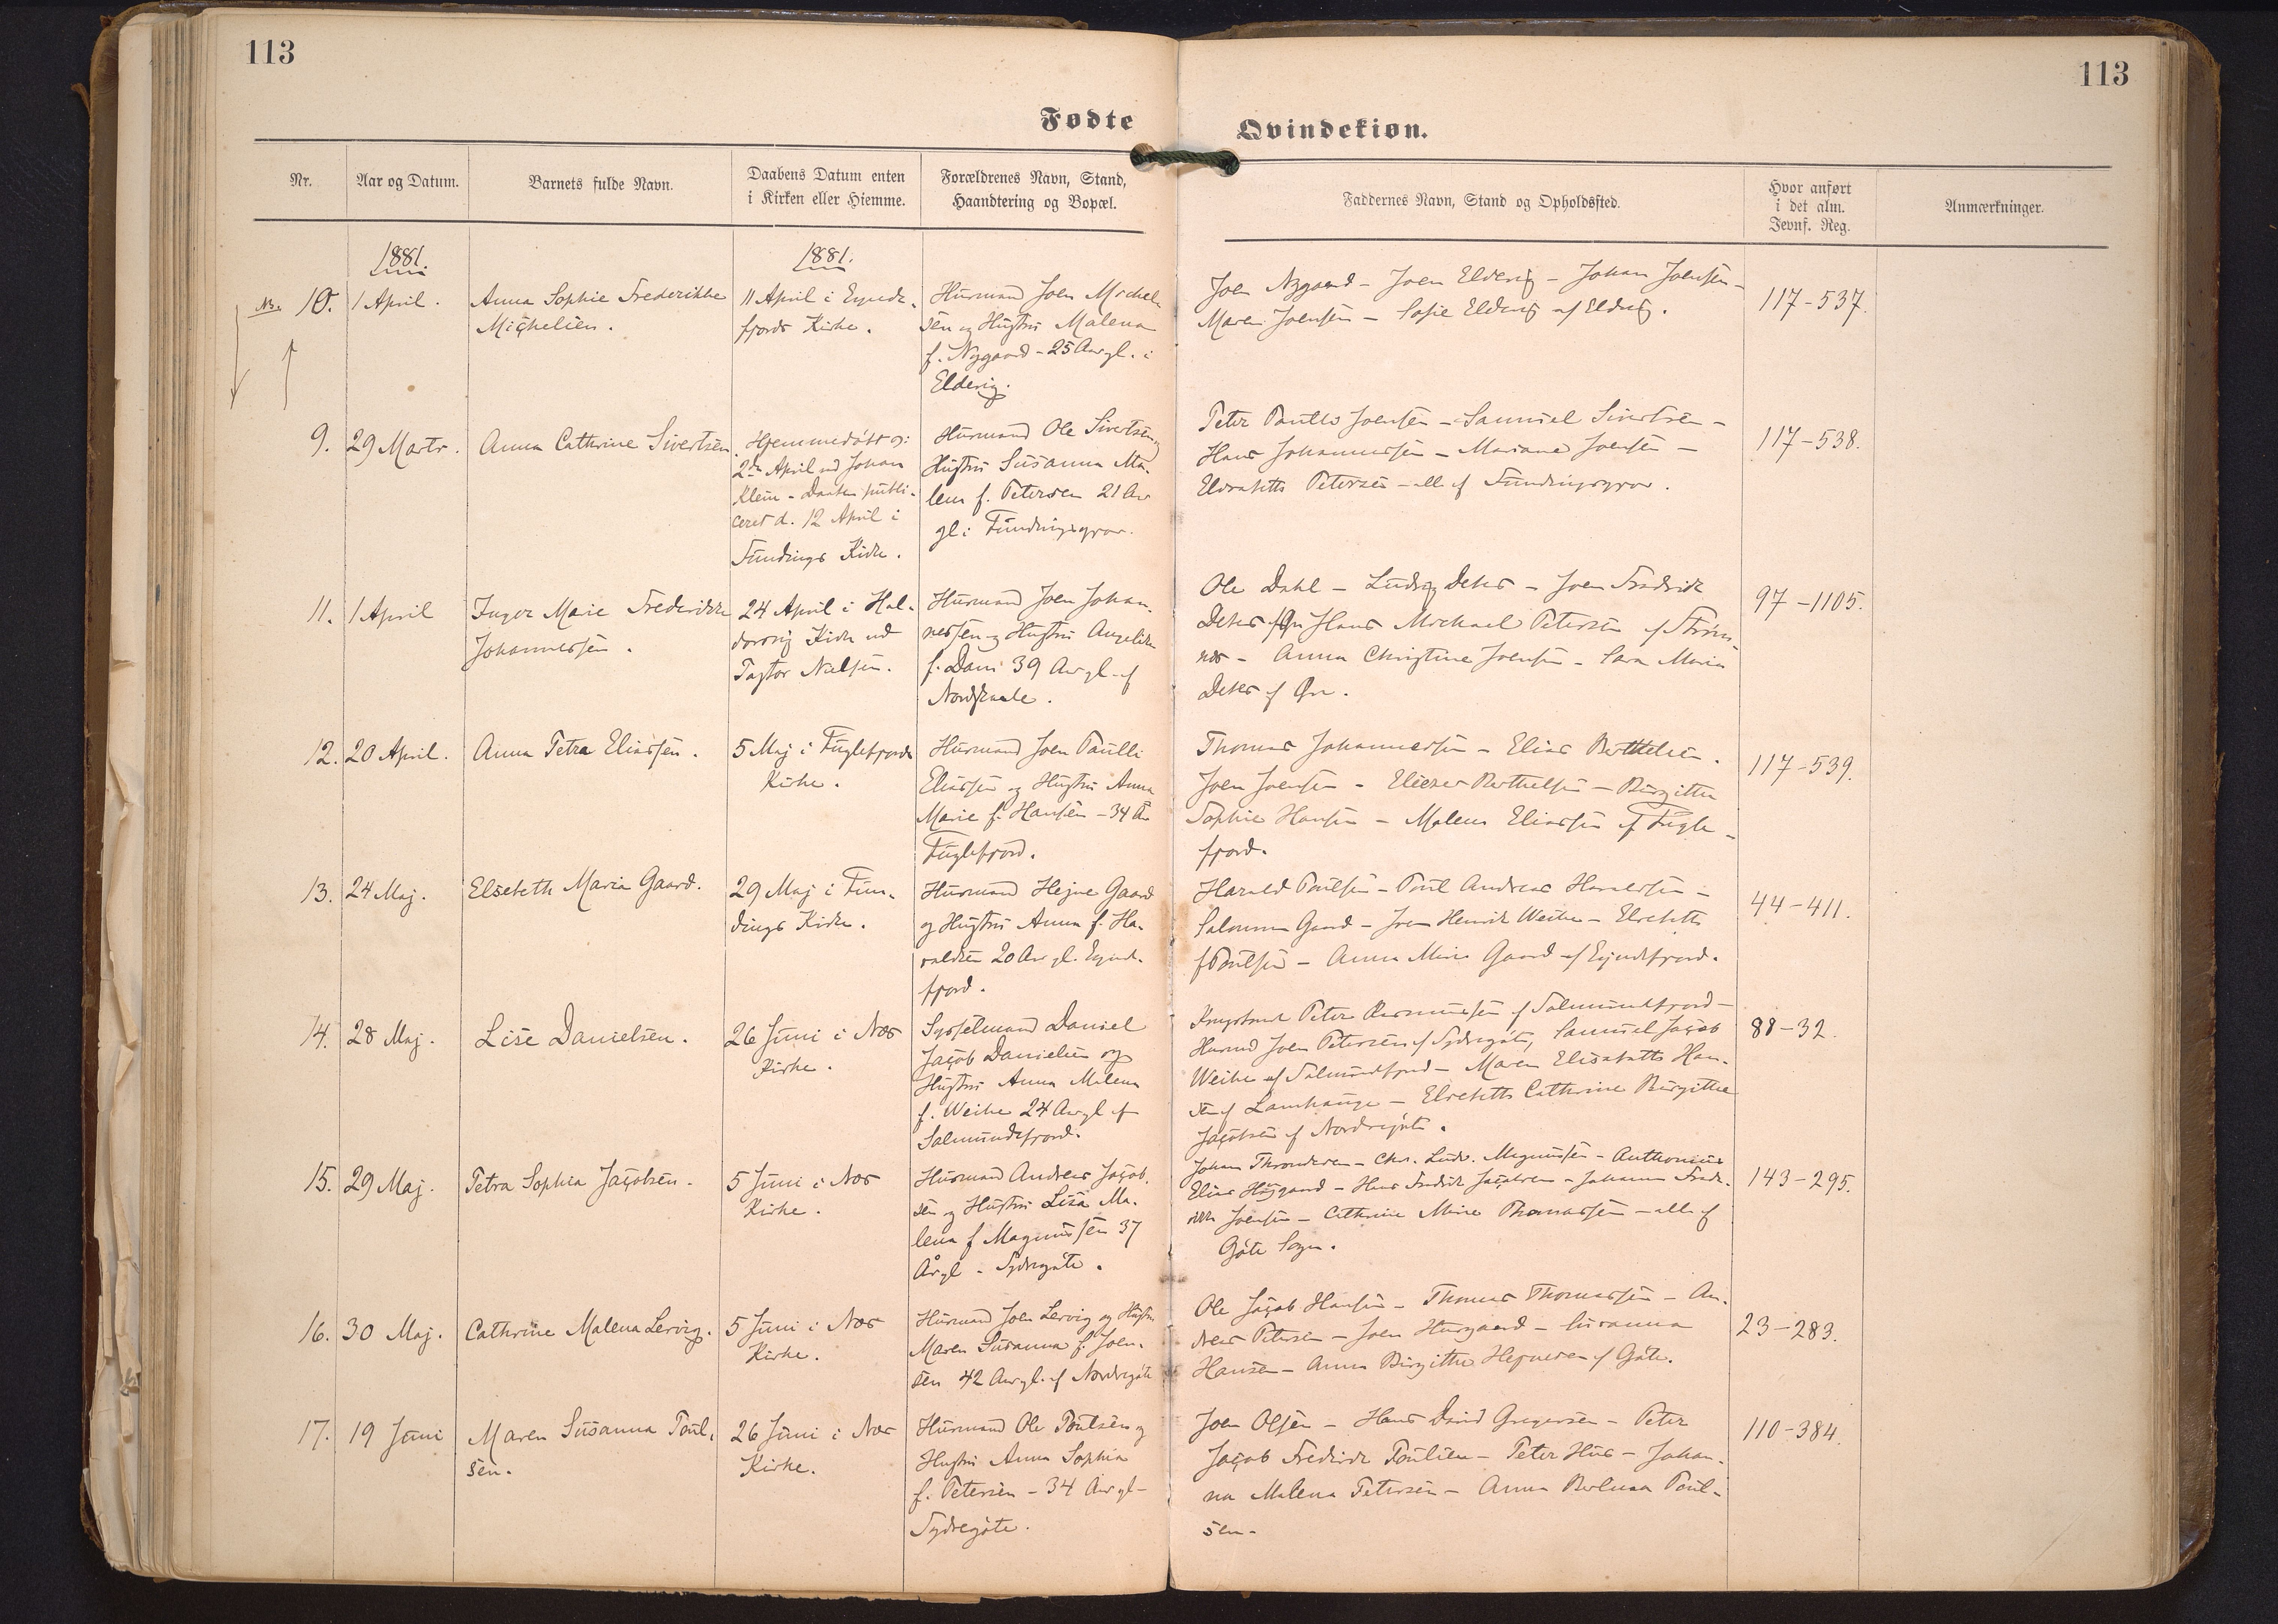 113
113
Fødte
Qvindekiøn.
Nr.
Aar og Datum.
Barnets fulde Navn.
Daabens Datum enten
i Kirken eller Hjemme.
Forældrenes Navn, Stand,
Haandtering og Bopæl.
Faddernes Navn, Stand og Opholdssted.
Hvor anført
i det alm.
Jevnf. Reg.
Anmærkninger.
1881.
1881.
NB. 10.
1 April.
Anna Sophie Frederikke
Michelsen.
11 April i Eynde-
fjords Kirke.
Husmand Joen Michel-
sen og Hustru Malena
f. Nygaard - 25 Aar gl. i
Elderig.
Joen Nygaard - Joen Elderig - Johan Joensen -
Maren Joensen - Sofie Elderig af Elderig.
117-537.
9.
29 Marts.
Anna Cathrine Sivertsen.
Hjemmedøbt
2den April ved Johan
Klein - Daaben publi-
ceret d. 12 April i
Fundings Kirke.
Husmand Ole Sivertsen og
Hustru Susanna Ma-
lena f. Petersen 21 Aar
gl i Fundingsgrov.
Peter Paulli Joensen - Samuel Sivertsen -
Hans Johannessen - Mariane Joensen -
Elsebeth Petersen - alle af Fundingsgrov.
117-538.
11.
1 April
Inger Marie Frederikke
Johannessen.
24 April i Hal-
dorsvig Kirke ved
Pastor Nielsen.
Husmand Joen Johan-
nessen og Hustru Angelika
f. Dam 39 Aar gl. af
Nordskaale.
Ole Dahl - Ludvig Debes - Joen Fredrik
Debes Hans Michael Petersen af Strøm-
nes - Anna Christine Joensen - Sara Maria
Debes af
97-1105.
12.
20 April.
Anna Petra Eliassen.
5 Maj i Fuglefjords
Kirke.
Husmand Joen Paulli
Eliassen og Hustru Anna
Marie f. Hansen - 34 A
Fuglefjord.
Thomas Johannessen - Elias Berthelsen.
Joen Joensen - Eliesar Berthelsen - Birgitte
Sophie Hansen - Malena Eliassen af Fugle-
fjord.
117-539.
13.
24 Maj.
Elsebeth Maria Gaard.
29 Maj i Fun-
dings Kirke.
Husmand Hejne Gaard
og Hustru Anna f. Ha-
raldsen 20 Aar gl. Eynde-
fjord.
Harald Poulsen - Poul Andreas Haraldsen -
Salomon Gaard - Joen Henrik Weihe - Elsebeth
Poulsen - Anna Marie Gaard af Eyndefjord.
44-411.
14.
28 Maj.
Lise Danielsen.
26 Juni i Næs
Kirke.
Sysselmand Daniel
Jacob Danielsen og
Hustru Anna Malena
f. Weihe 24 Aar gl af
Salmundefjord.
Peter Rasmussen af Salmundefjord -
Husmd Joen Petersen af Sydregøte, Samuel Jacob
Weihe af Salmundefjord - Maren Elisabeth Han-
sen af Lamhauge - Elsebeth Cathrine Birgitte
Jacobsen af Nordregøte.
88-32.
15.
29 Maj.
Petra Sophia Jacobsen.
5 Juni i Næs
Kirke.
Husmand Andreas Jacob-
sen og Hustru Lisa Ma-
lena f Magnussen 37
År gl - Sydregøte.
Johan Throndesen - Chr. Ludv. Magnussen - Anthonius
Elias Højgaard - Hans Fredrik Jacobsen - Johanna Frede-
rikke Joensen - Cathrine Marie Thomassen - alle af
Gøte Sogn.
143-295.
16.
30 Maj.
Cathrine Malena Lervig.
5 Juni i Næs
Kirke.
Husmand Joen Lervig og Hustru
Maren Susanna f. Joen-
sen 42 Aar gl. af Nordregøte
Ole Jacob Hansen - Thomas Thomassen - An-
dreas Petersen - Joen Husgaard - Susanna
Hansen - Anna Birgitte Hejnesen af Gøte.
23-283.
17.
19 Juni
Maren Susanna Poul-
sen.
26 Juni i Næs
Kirke.
Husmand Ole Poulsen og
Hustru Anna Sophia
f. Petersen - 34 Aar gl -
Sydregøte.
Joen Olsen - Hans David Gregersen - Peter
Jacob Fredrik Poulsen - Peter Hus - Johan-
na Malena Petersen - Anna Poul-
sen -
110-384.